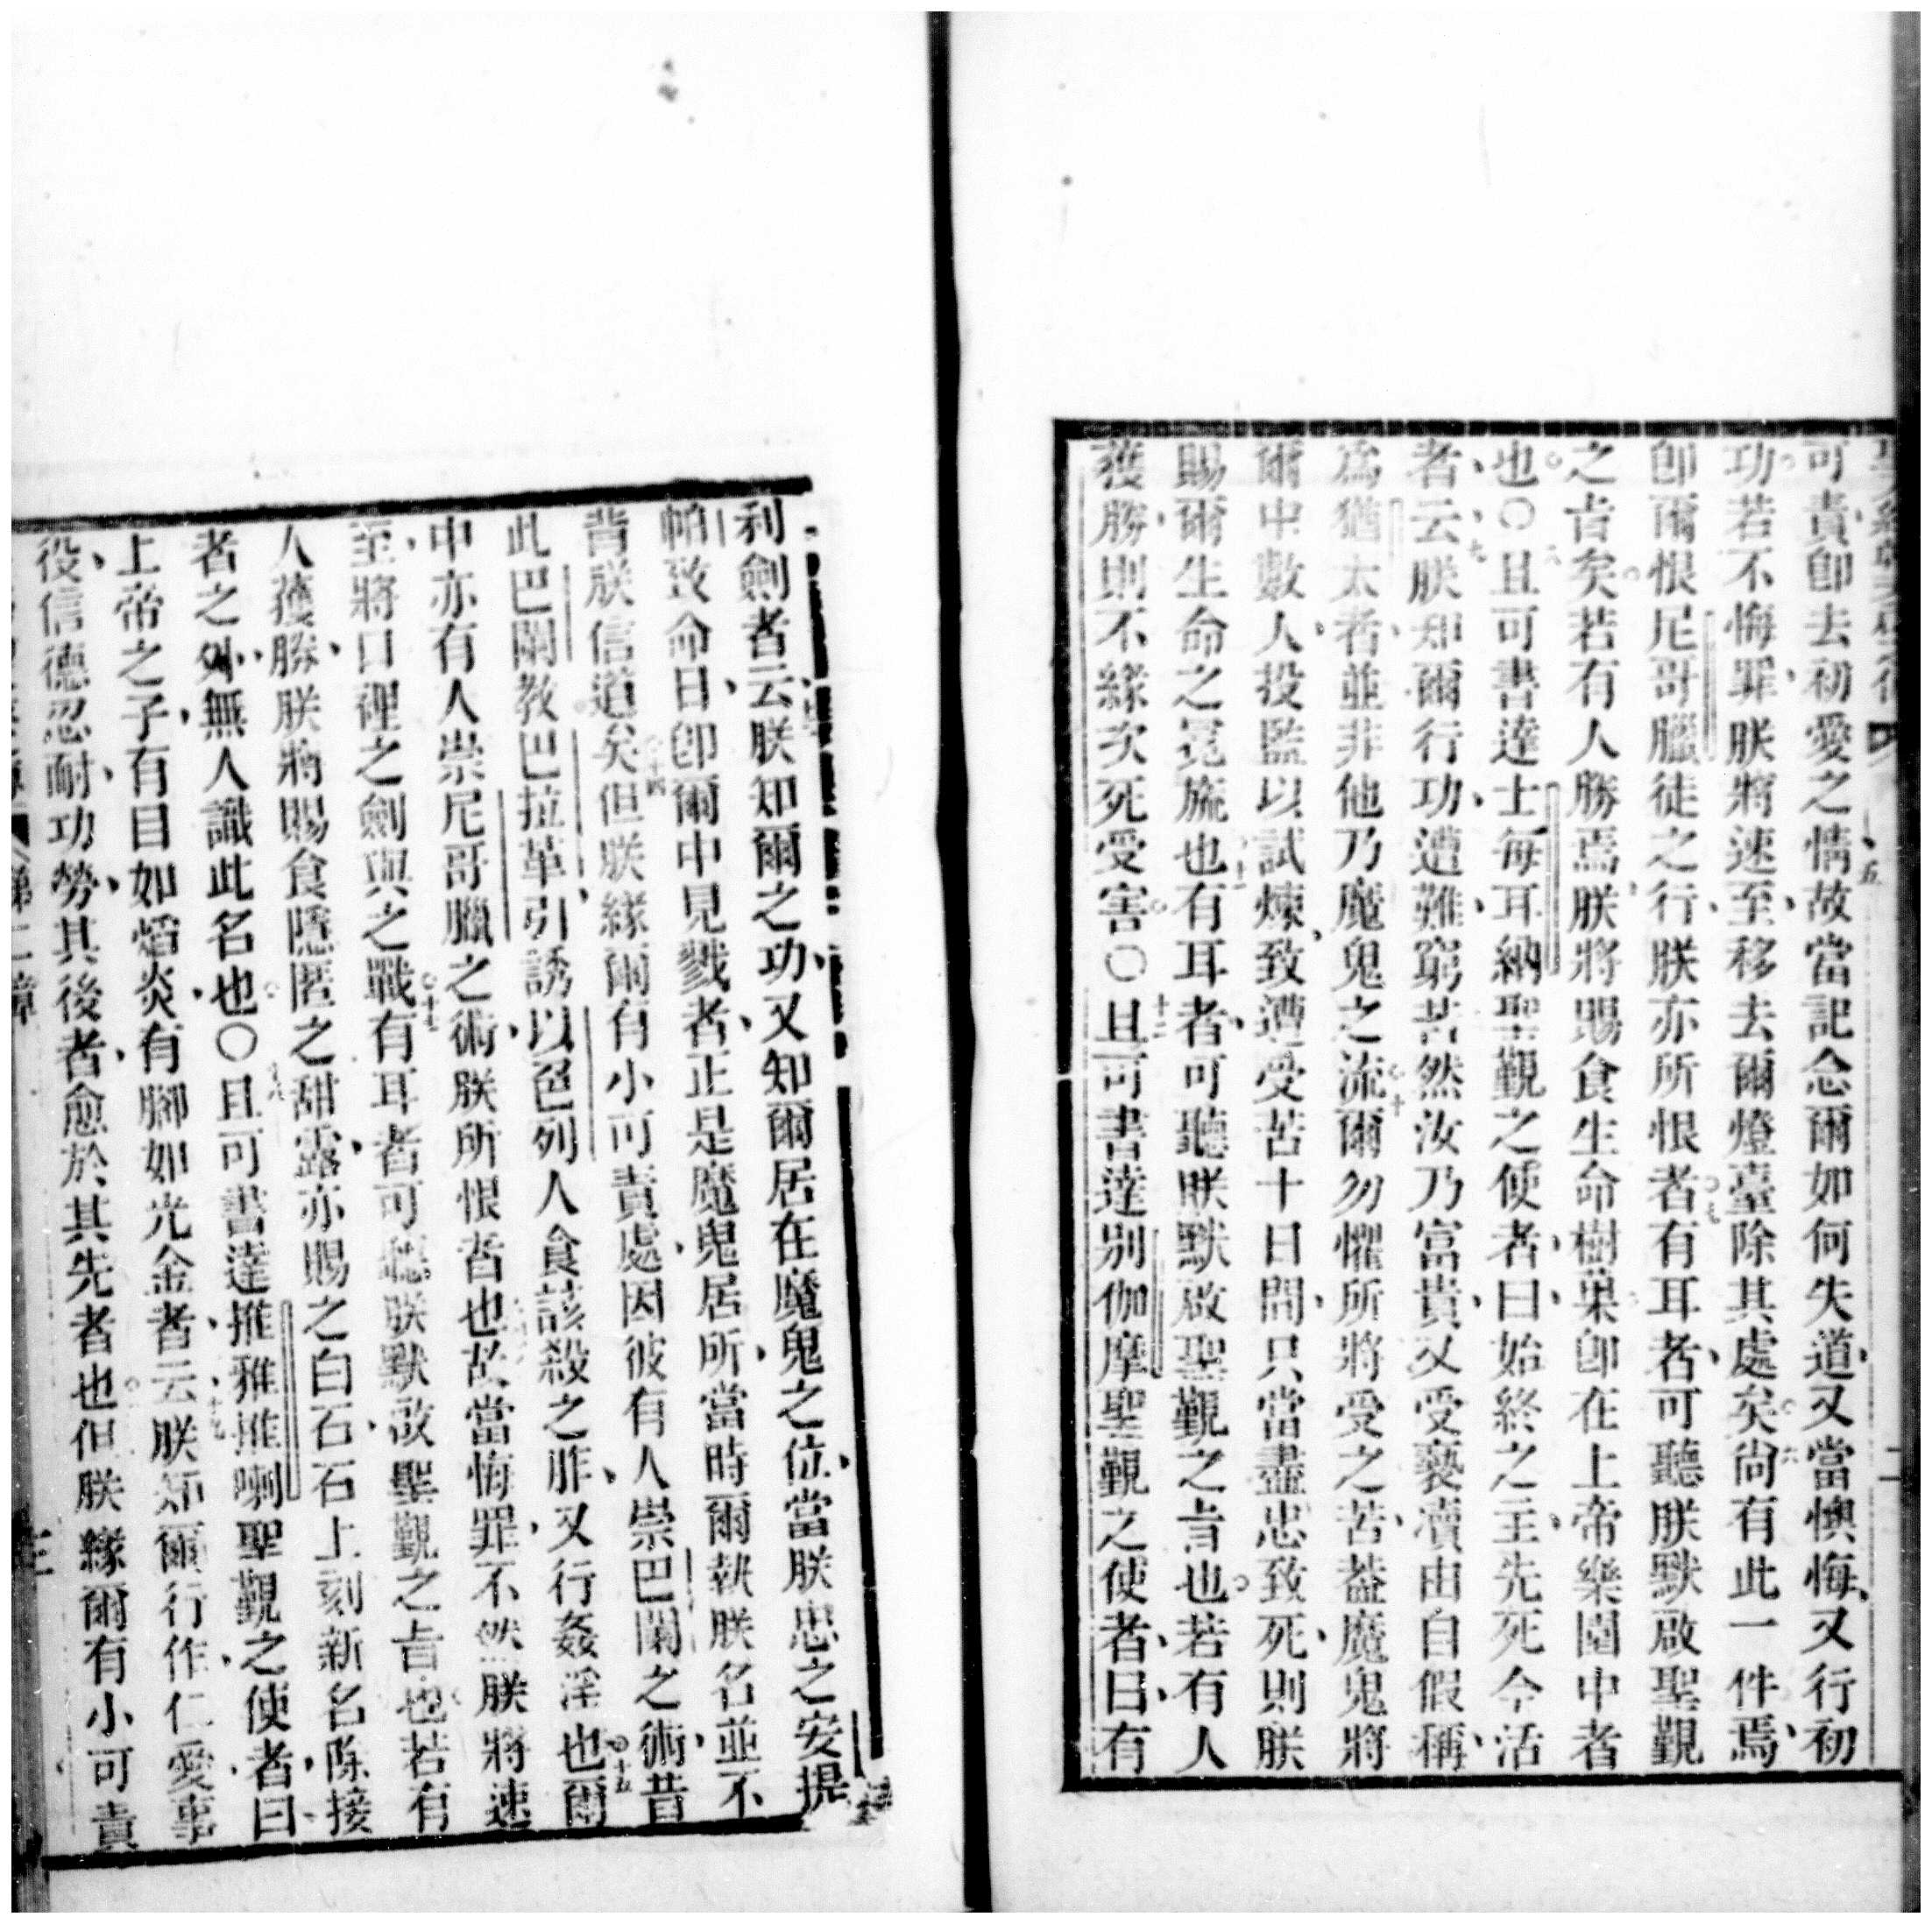 可責卽去初愛之情故當記念爾如何失道又當懊悔又行初
功若不悔罪朕將速至移去爾燈臺除其處矣尙有此一件焉
卽爾恨尼哥臘徒之行朕亦所恨者有耳者可聽朕默啟聖觀
之旨矣若有人勝焉朕將賜食生命樹菓卽在上帝樂園中者
也〇且可書達士每耳納聖觀之使者曰始終之主先死今活
者云朕知爾行功遭難窮苦然汝乃富貴又受褻瀆由自假稱
爲猶太者並非他乃魔鬼之流爾勿懼所將受之苦葢魔鬼將
爾中數人投監以試煉致遭受苦十日間只當盡忠致死則朕
賜爾生命之冕旒也有耳者可聽朕默啟聖觀之旨也若有人
獲勝則不緣次死受害〇且可書達別伽摩聖觀之使者曰有
利劍者云朕知爾之功又知爾居在魔鬼之位當朕忠之安提
帕致命日卽爾中見戮者正是魔鬼居所當時爾執朕名並不
背朕信道矣但朕緣爾有小可責處因彼有人崇巴闌之術昔
此巴闌教巴拉革引誘以色列人食該殺之胙又行姦淫也爾
中亦有人崇尼哥臘之術朕所恨者也故當悔罪不然朕將速
至將口裡之劍與之戰有耳者可聽朕默啟聖觀之旨也若有
人獲勝朕將賜食隱匿之甜露亦賜之白石石上刻新名除接
者之外無人識此名也〇且可書達推雅推喇聖觀之使者曰
上帝之子有目如焰炎有腳如光金者云朕知爾行作仁愛事
役信德忍耐功勞其後者愈於其先者也但朕緣爾有小可責